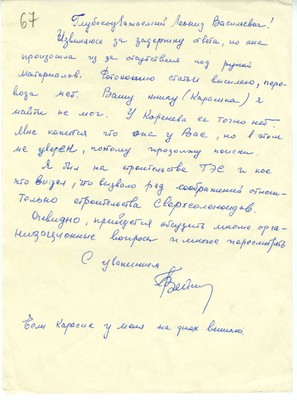 67
Глубокоуважаемый Леонид Васильевич!
Извиняюсь за задержку ответа, но она
произошла из за отсутствия под рукой
материалов. Фотокопию статьи высылаю, пере-
вода нет. Вашу книгу (Карасика) я
найти не мог. У Коренева ее точно нет.
Мне кажется что она у Вас, но в этом
не уверен, потому продолжу поиски.
Я был на строительстве ТЭС и кое
что видел, что вызвало ряд соображений относи-
тельно строительства Сверхсоленоидов.
Очевидно, придется обсудить много орга-
низационные вопросы и многое пересмотреть
С уважением
Если Карасик у меня на днях вышлю